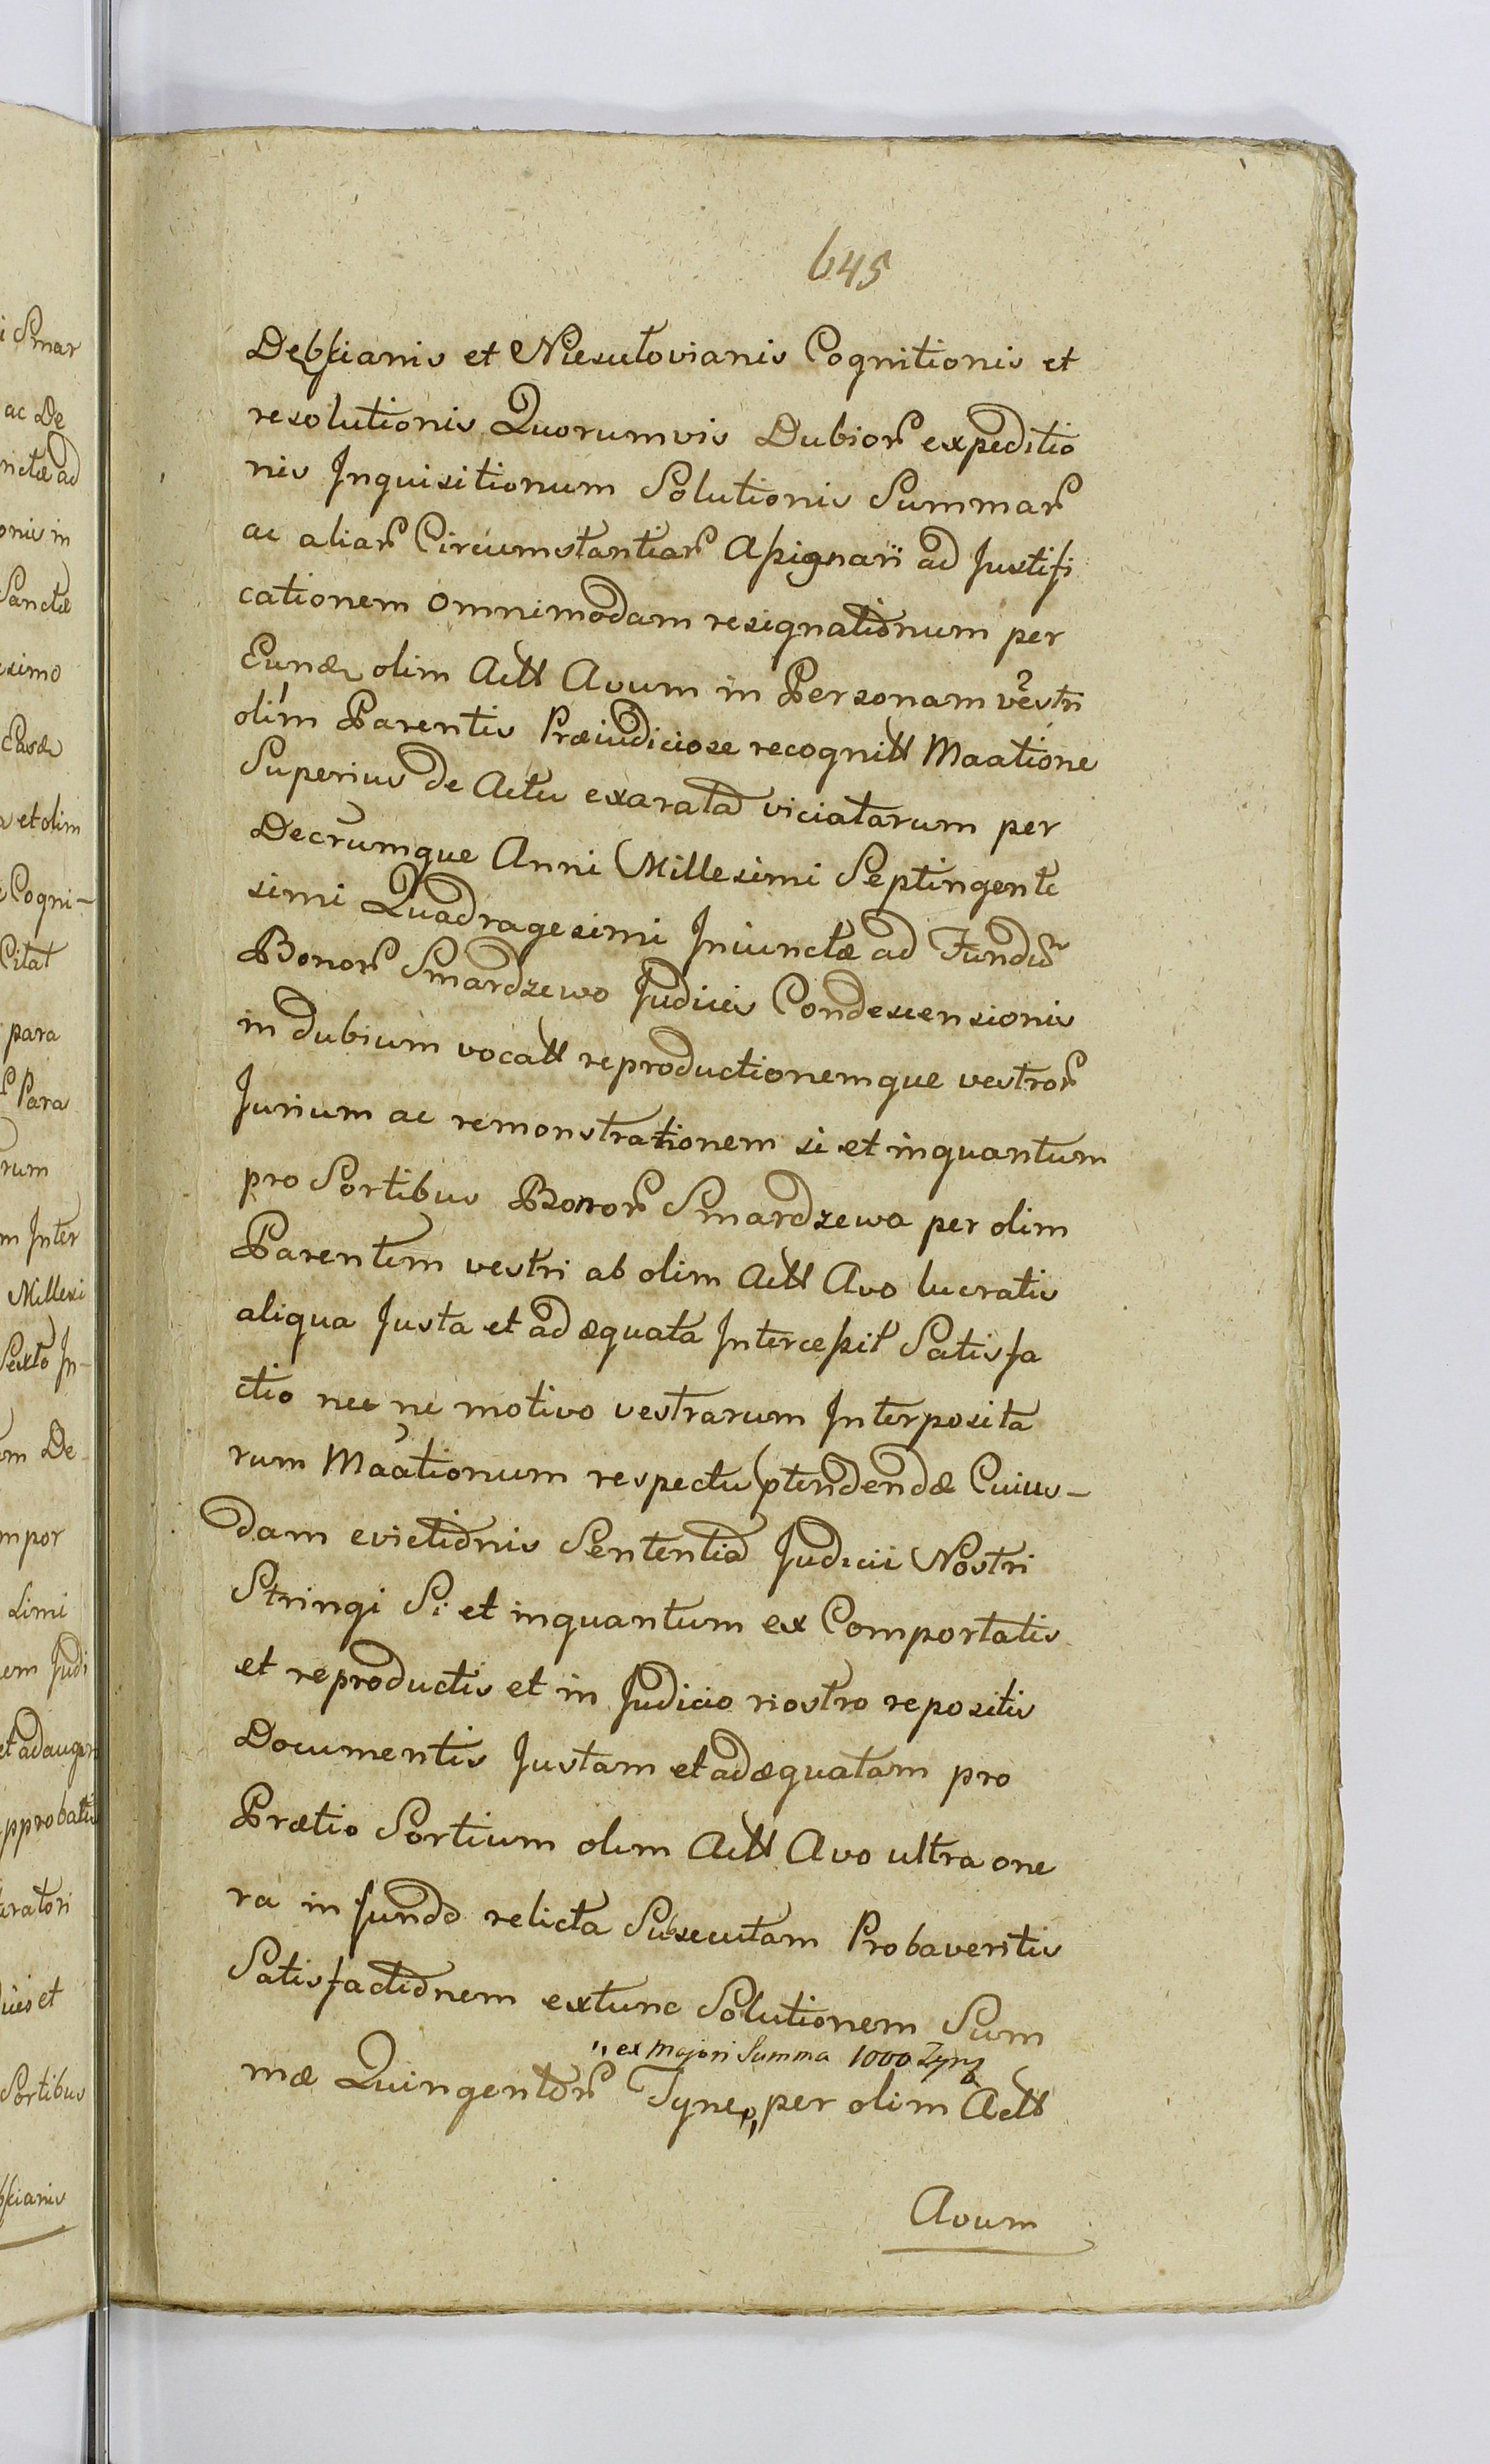 645
Debskianis et Niesutovianis Cognitionis et
resolutionis Quorumvis Dubior expeditio
nis Inquisitionum Solutionis Summar
ac aliar Circumstantiar Assignari ad Justifi
cationem omnimodam resignationum per
olim Actt Avum in Personam vestri
olim Parentis Præiudiciose recognitt Maatione
Superius de Actu exarata viciatarum per
Decrumque Anni Millesimi Septingente
simi Quadragesimi Iniunctæ ad Fundu
Bonor Smardzewo Judicii Condescensionis
in dubium vocatt reproductionemque vestror
Jurium ac remonstrationem si et inquantum
pro Sortibus Bonor Smardzewa per olim
Parentem vestri ab olim Actt Avo lucratis
aliqua Justa et adæquata Intercessit Satisfa
ctio nec ne motivo vestrarum Interposita
rum Maationum respectu ptendendæ Cuius-
dam evictionis Sententia Judicii Nostri
Stringi Si et inquantum ex Comportatis
et reproductis et in Judicio nostro repositis
Documentis Justam et adæquatam pro
Prætio Sortium olim Actt Avo ultra one
ra in fundo relicta Subsecutam Probaveritis
Satisfactionem extunc Solutionem Sum
,, ex Majori Summa 1000
mæ Quingentor per olim Actt
Avum
i Smar
ac De
nctæ ad
onis in
Sanctæ
simo
et olim
Cogni-
Citat
para
Para
rum
m Inter
Millesi
Sexto In-
em De-
mpor
Limi
em Judi
pprobatis
aratori
et
Sortibus
bskianis